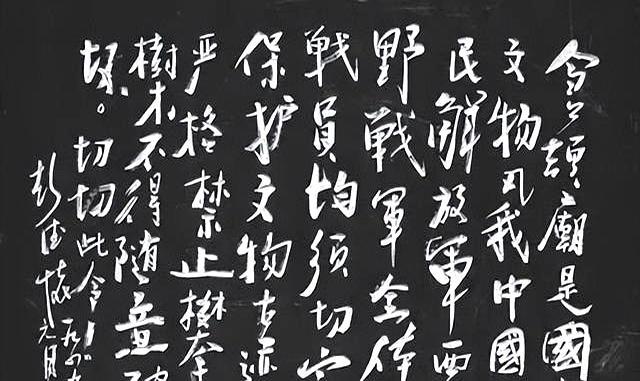 仓頡廟是國
文物凡我中國
民解放軍西
野戰軍全体
戰員均須切实
保护文物古迹
严格禁止攀
樹木不得隨意破
坏。切切此令！
彭德怀 一九四九
元月